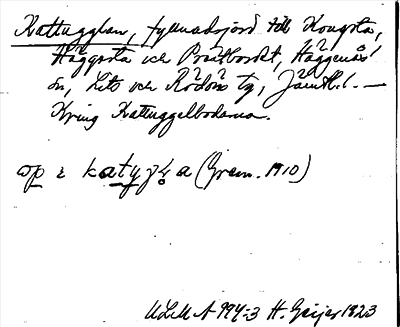 Kattugglan, fyllnadsjord till Kougsta,
Häggsta och Prästbordet, Häggenås
sn, Lits och Rödöns tg, Jämtl. —
Kring Kattuggelbodarna.
op i katygla (Grem. 1910)
ULMA 994:3 H. Geijer 1823